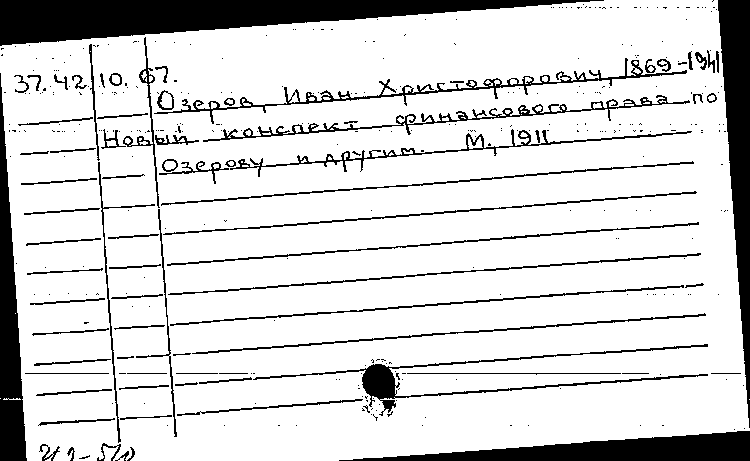 37.42.10.67.
Озеров, Иван Христофорович, 1869-1941
Новый конспект финансового права по
Озерову и другим. М., 1911